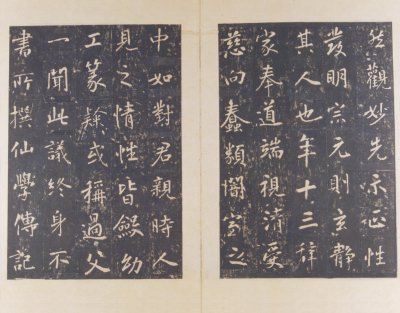 然觀妙先示正性
發明宗元則玄靜
其人也年十三辭
家奉道端視清受
慈向蠢類闇室之
中如對君親時人
見之情性皆斂幼
工篆隸或稱過父
一聞此議終身不
書所撰仙學傳記